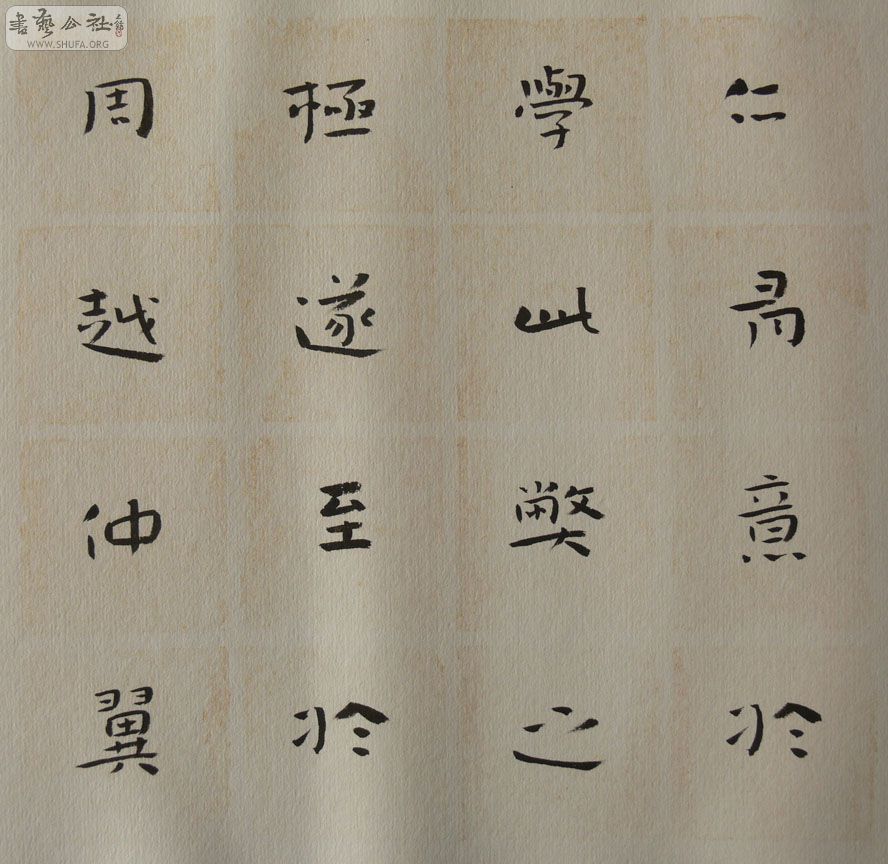 書藝公社
WWW.SHUFA.ORG
仁意於
學此獘之
極遂至於
周越仲翼